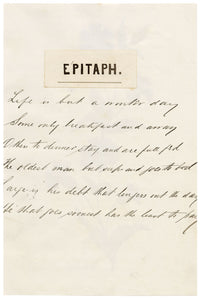 EPITAPH.
Life is but a winter day
Some only breakfast and away
Others to dinner stay and are full fed
The oldest man but sups and goes to bed
Large is his debt that lingers out the day
He that goes soonest has the least to pay